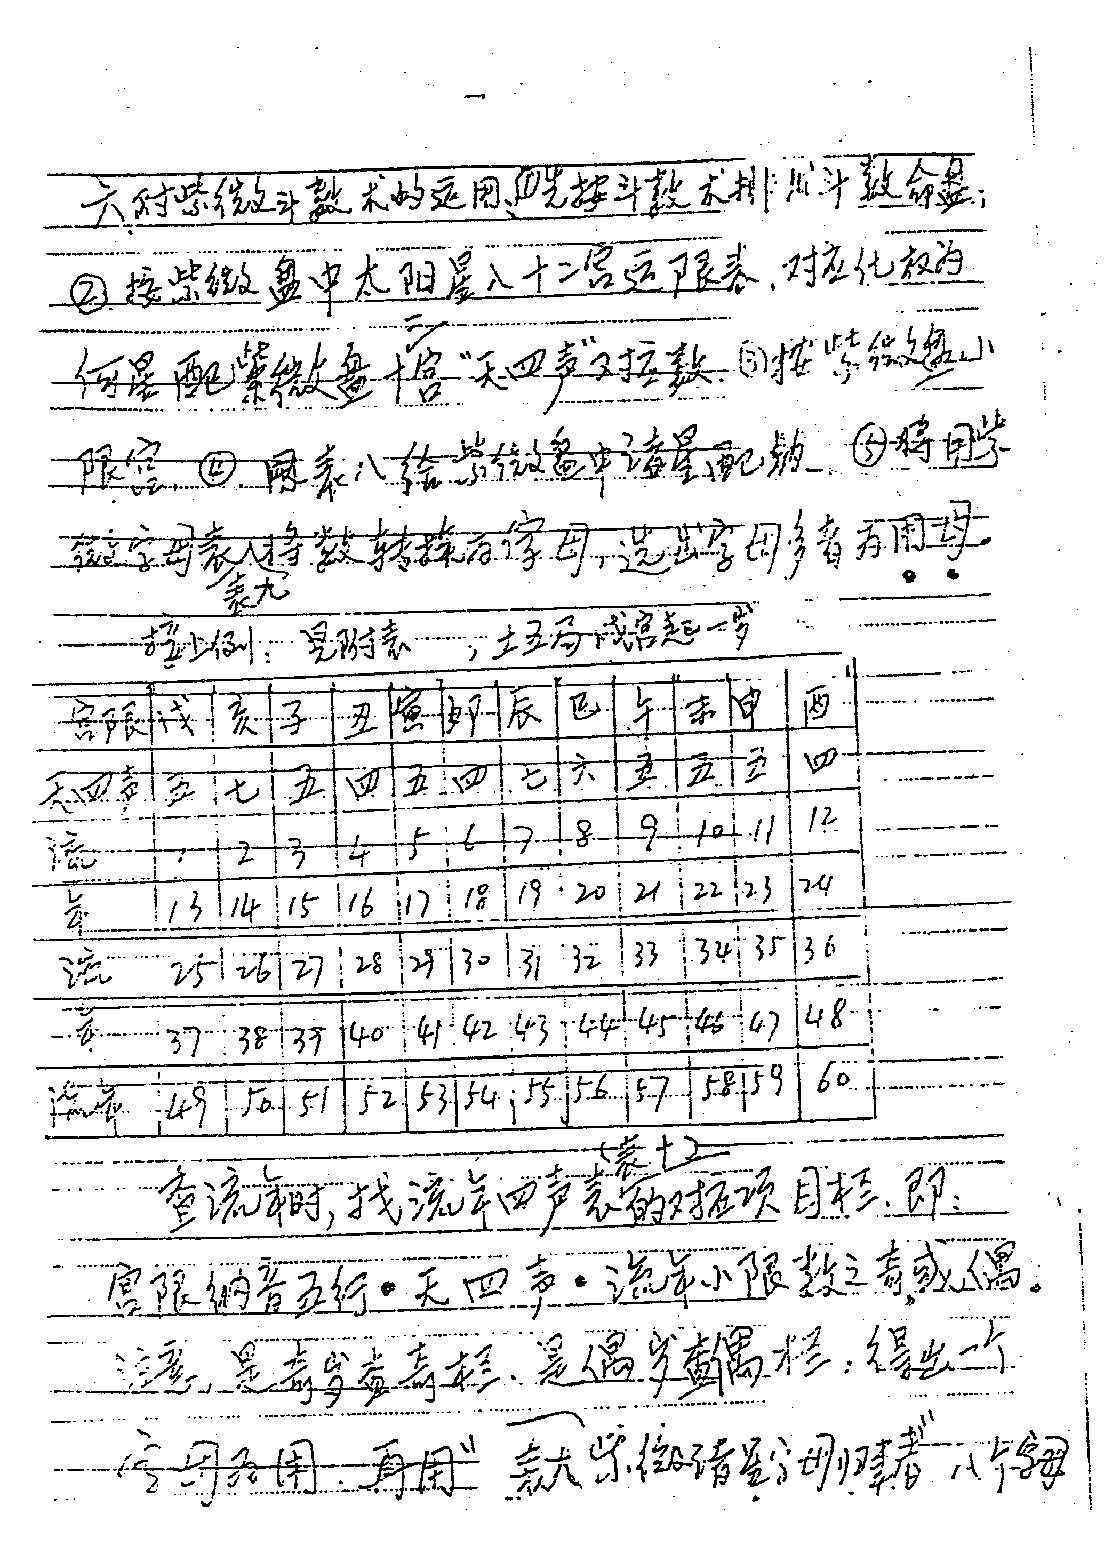 六对紫微斗数术的运用、①先按斗数术排出斗数命盘;
②按紫微盘中太阳星入十二宫运限表、对应化放为
何星配紫微盘十二宫“天四声”对应数、③按紫微盘小
限宫、④、用表八给紫微盘中诸星配数、⑤将用紫
微字母表将数转换为字母,选出字母多者为用母。
表九
接上例:见附表,土五局戌宫起一岁
宫限 戌 亥 子 丑 寅 卯 辰 巳 午 未 申 酉
天四声 五 七 五 四 五 四 七 六 五 五 五 四
流 1 2 3 4 5 6 7 8 9 10 11 12
年 13 14 15 16 17 18 19 20 21 22 23 24
流 25 26 27 28 29 30 31 32 33 34 35 36
年 37 38 39 40 41 42 43 44 45 46 47 48
流年 49 50 51 52 53 54 55 56 57 58 59 60
表十二
查流年时,找流年四声表的对应项目栏、即:
宫限纳音五行·天四声·流年小限数之奇或偶。
注意、是奇岁查奇栏、是偶岁查偶栏,得出一个
字母为用、再用“表六紫微诸星字母归类者”八个字母